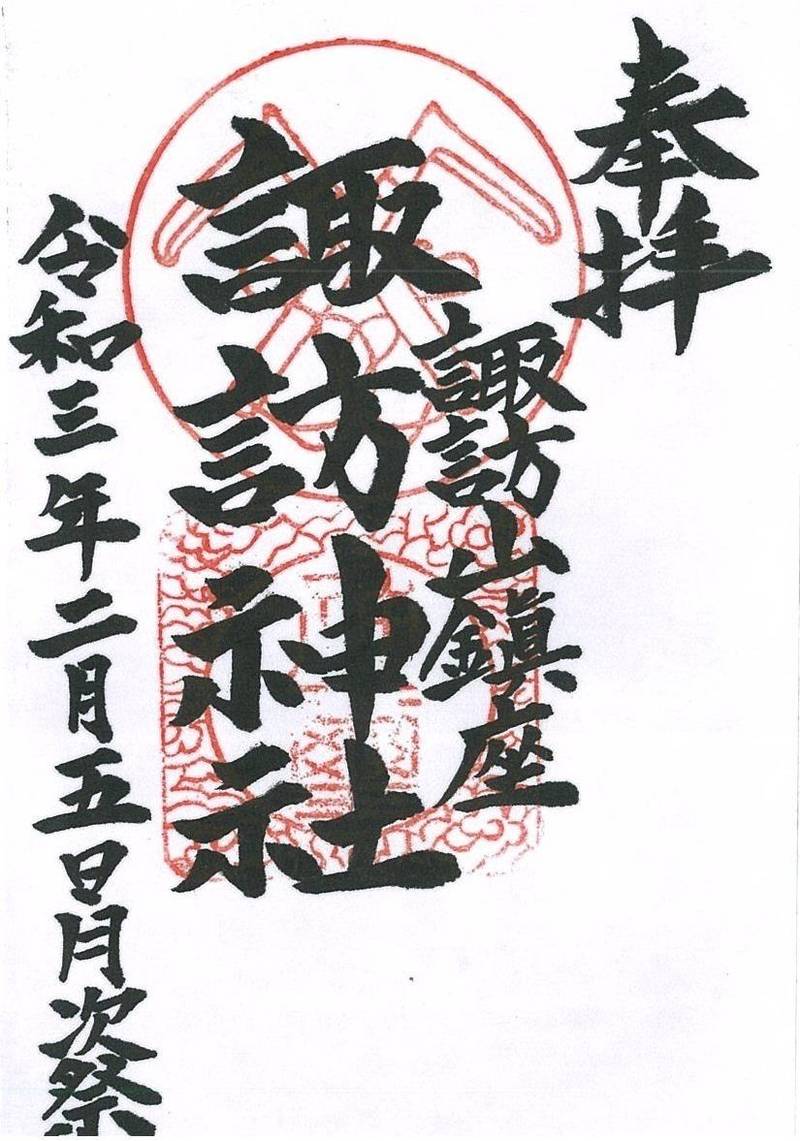 奉拝
諏訪山鎮座
諏訪神社
令和三年二月五日月次祭